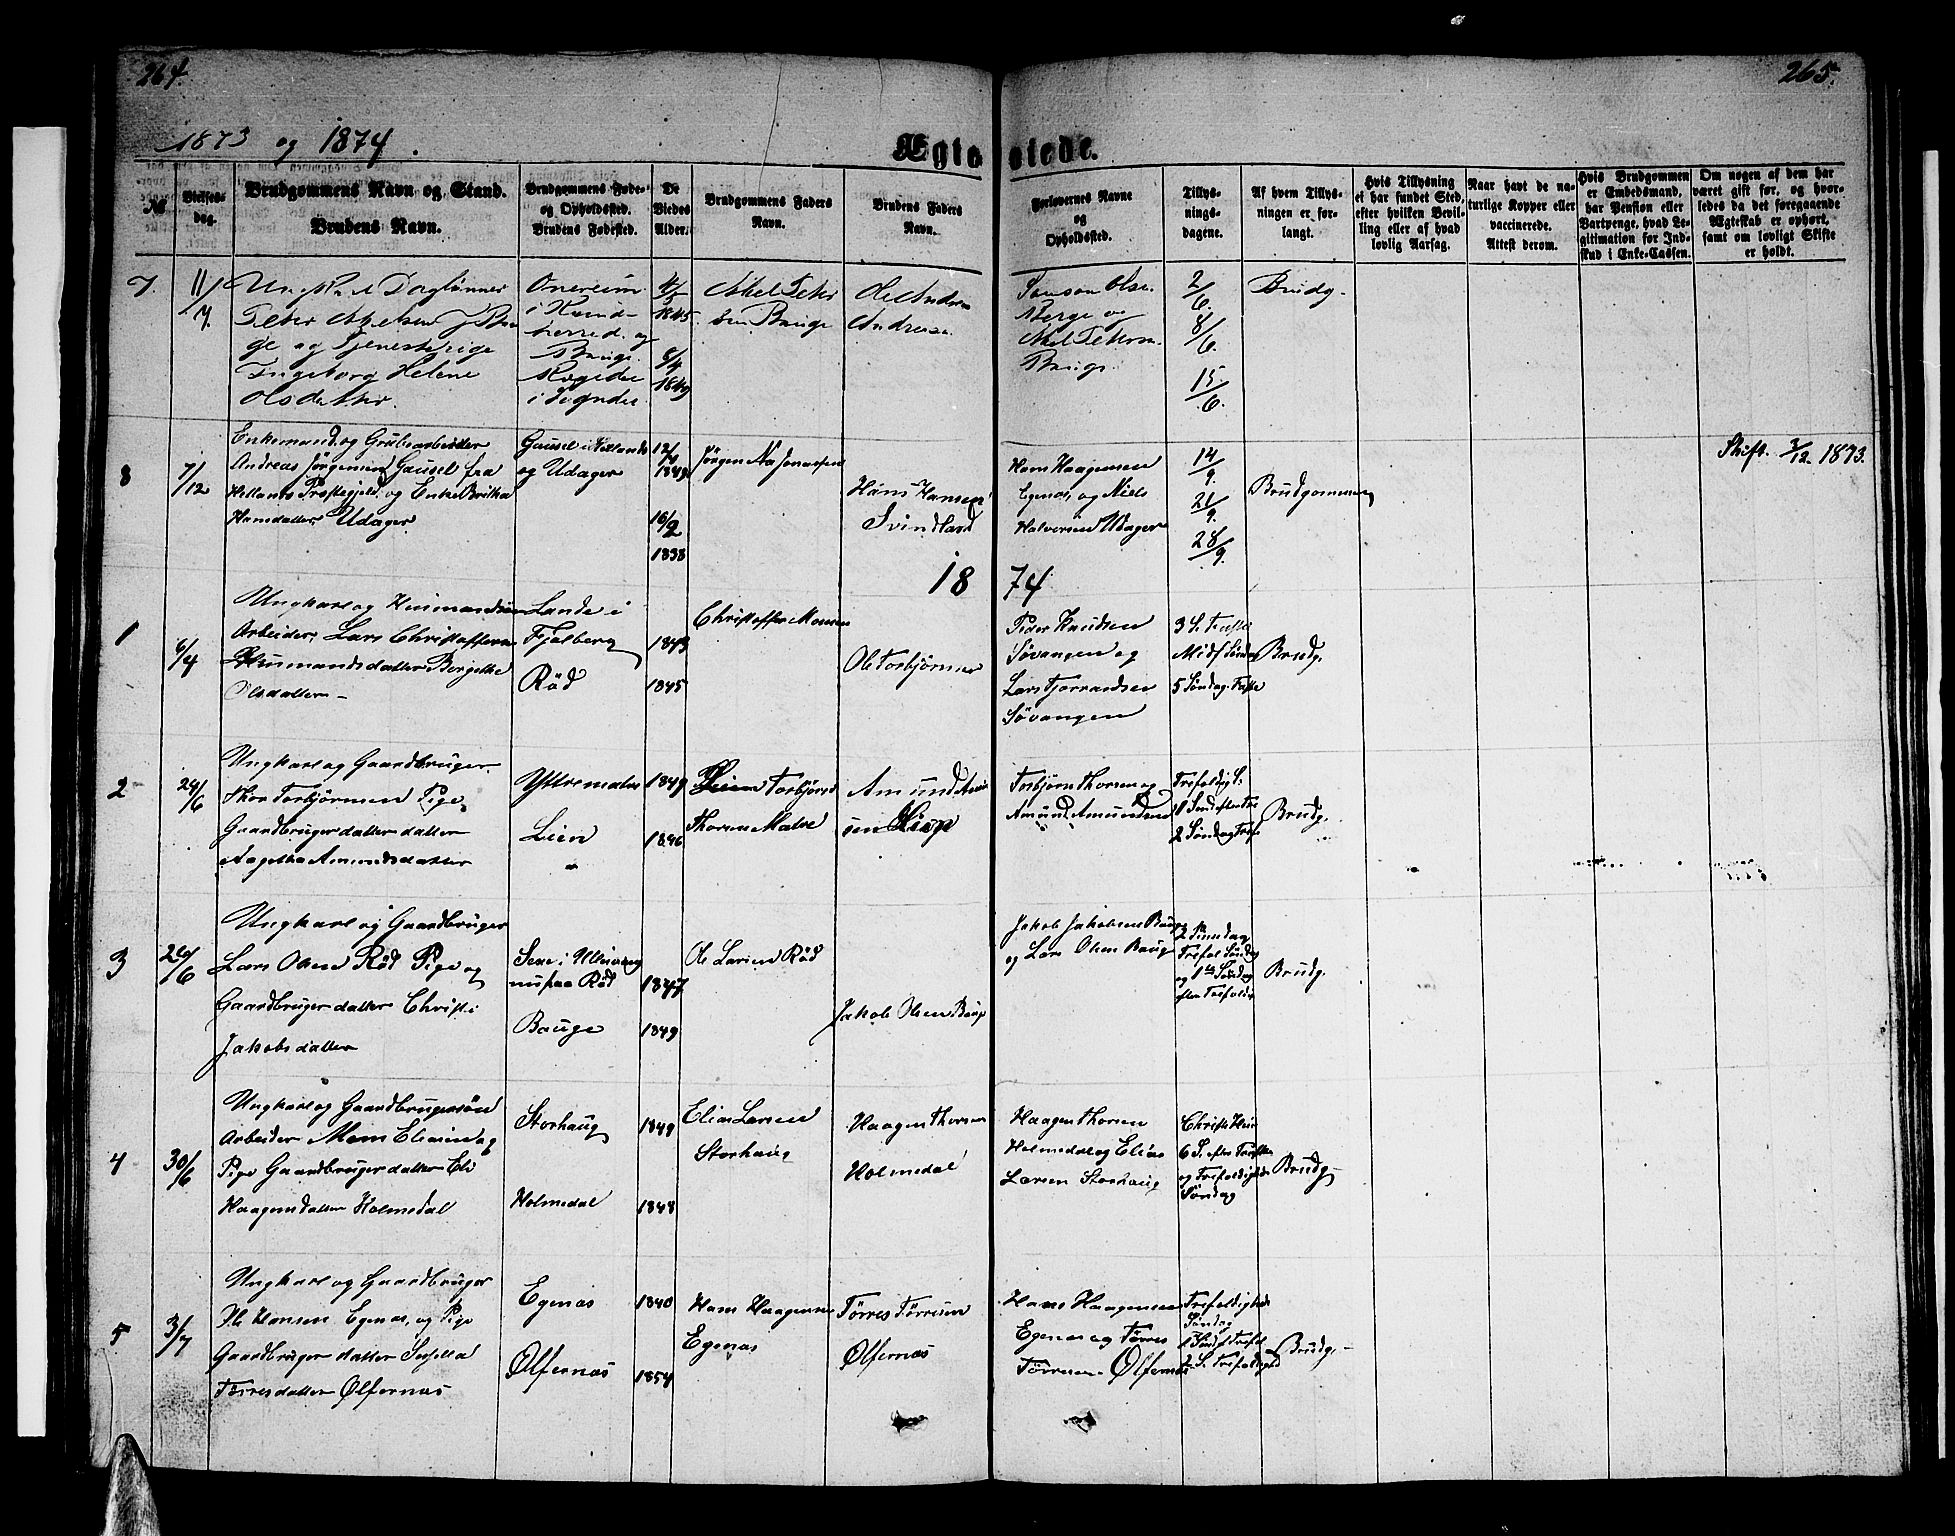 264.
265.
1873 og 1874.
Ægteviede.
№
Vielses-
dag.
Brudgommens Navn og Stand.
Brudens Navn.
Brudgommens Føde-
og Opholdssted.
Brudens Fødested.
De
Viedes
Alder.
Brudgommens Faders
Navn.
Brudens Faders
Navn.
Forlovernes Navne
og
Opholdssted.
Tillys-
nings-
dagene.
Af hvem Tillys-
ningen er for-
langt.
Hvis Tillysning
ei har fundet Sted,
efter hvilken Bevil-
ling eller af hvad
lovlig Aarsag.
Naar havt de na-
turlige Kopper eller
vaccinerede.
Attest derom.
Hvis Brudgommen
er Embedsmand,
har Pension eller
Vartpenge, hvad Le-
gitimation for Ind-
skud i Enke-Cassen.
Om nogen af dem har
været gift før, og hvor-
ledes da det foregaaende
Ægteskab er ophørt,
samt om lovligt Skifte
er holdt.
7.
11/7.
Daglønner
og Tjenestepige
Ingeborg Helene
Olsdatter.
i
og
Bauge.
i
1845
8/4
1849
Bauge
Ole Andreas
Andersen
Samson Olsen
Berge og
Bauge.
2/6.
8/6.
15/6.
Brudg.
8
7/12
Enkemand og Grubearbeider
Andreas Jørgensen Gausel fra
Hetlands Præstegjeld og Enke
Hansdatter Udager
Gausel i Hetlands
og Udager
12/4
1849
16/2
1838
Jørgen Jonassen
Hans Hansen
Svindland
Hans Haagensen
Egenæs, og Niels
Halvorsen Udager
14/9.
21/9.
28/9.
Brudgommen
Skift. 3/12. 1873.
1874
1
6/4
Ungkarl og Husmandssøn
Arbeider, Lars Christoffersen
Husmandsdatter Bergithe
Olsdatter –
Lande i
Fjelberg
Röd
1843
1845
Christoffer Monsen
Ole Torbjörnsen
Peder Knudsen
Sövangen og
Lars Tjerrandsen
Sövangen
3 S. i Faste
Midf. Søndag
5 Søndag i Faste
Brudg.
2
24/6
Ungkarl og Gaardbruger
Thor Torbjörnsen Pige
Gaardbruger datter datter
Amundsdatter
Yttre
Lien
1849
1846
Torbjörn
Thorsen
Amund
sen
Torbjörn Thorsen og
Amund Amundsen
Trefoldig S.
1 Sönd. efter Tre
2 Söndag Tref.
Brudg.
3
24/6
Ungkarl og Gaardbruger
Lars Olsen Röd Pige og
Gaardbruger datter Christi
Jakobsdatter
i Ullensvang
nu paa Röd
Bauge
1847
1849
Ole Larsen Röd
Jakob Olsen Bauge
Jakob Jakobsen Bauge
og Lars Olsen Bauge
Trefol. Söndag
og 1ste Söndag
efter Trefoldig
Brudg.
4
30/6
Ungkarl og Gaardbrugersön
Arbeider Mons Eliasen og
Pige Gaardbruger datter Eli
Haagensdatter Holmedal
Storhaug
Holmedal
1849
1848
Elias Larsen
Storhaug
Haagen Thorsen
Holmedal
Haagen Thorsen
Holmedal og Elias
Larsen Storhaug
6 S. efter Paaske
og Trefoldigheds
Söndag
Brudg.
5
3/7
Ungkarl og Gaardbruger
Ole Hansen Egenæs, og Pige
Gaardbruger datter
Törresdatter Ölfernæs
Egenæs
Ölfernæs
1840
1854
Hans Haagensen
Egenæs
Törres Törresen
Ölfernæs
Hans Haagensen
Egenæs og Törres
Törresen Ölfernæs
Trefoldigheds
Söndag
1 Sönd. ef. Trefol.
2 S. Trefoldighed
Brudg. –